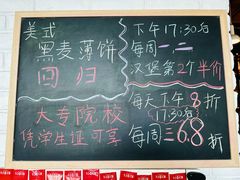 美式
黑麦薄饼
回归
大专院校
凭学生证可享
下午17:30后
每周一.二
汉堡第2个半价
每天下午8折
(17:30后)
每周三6.8折